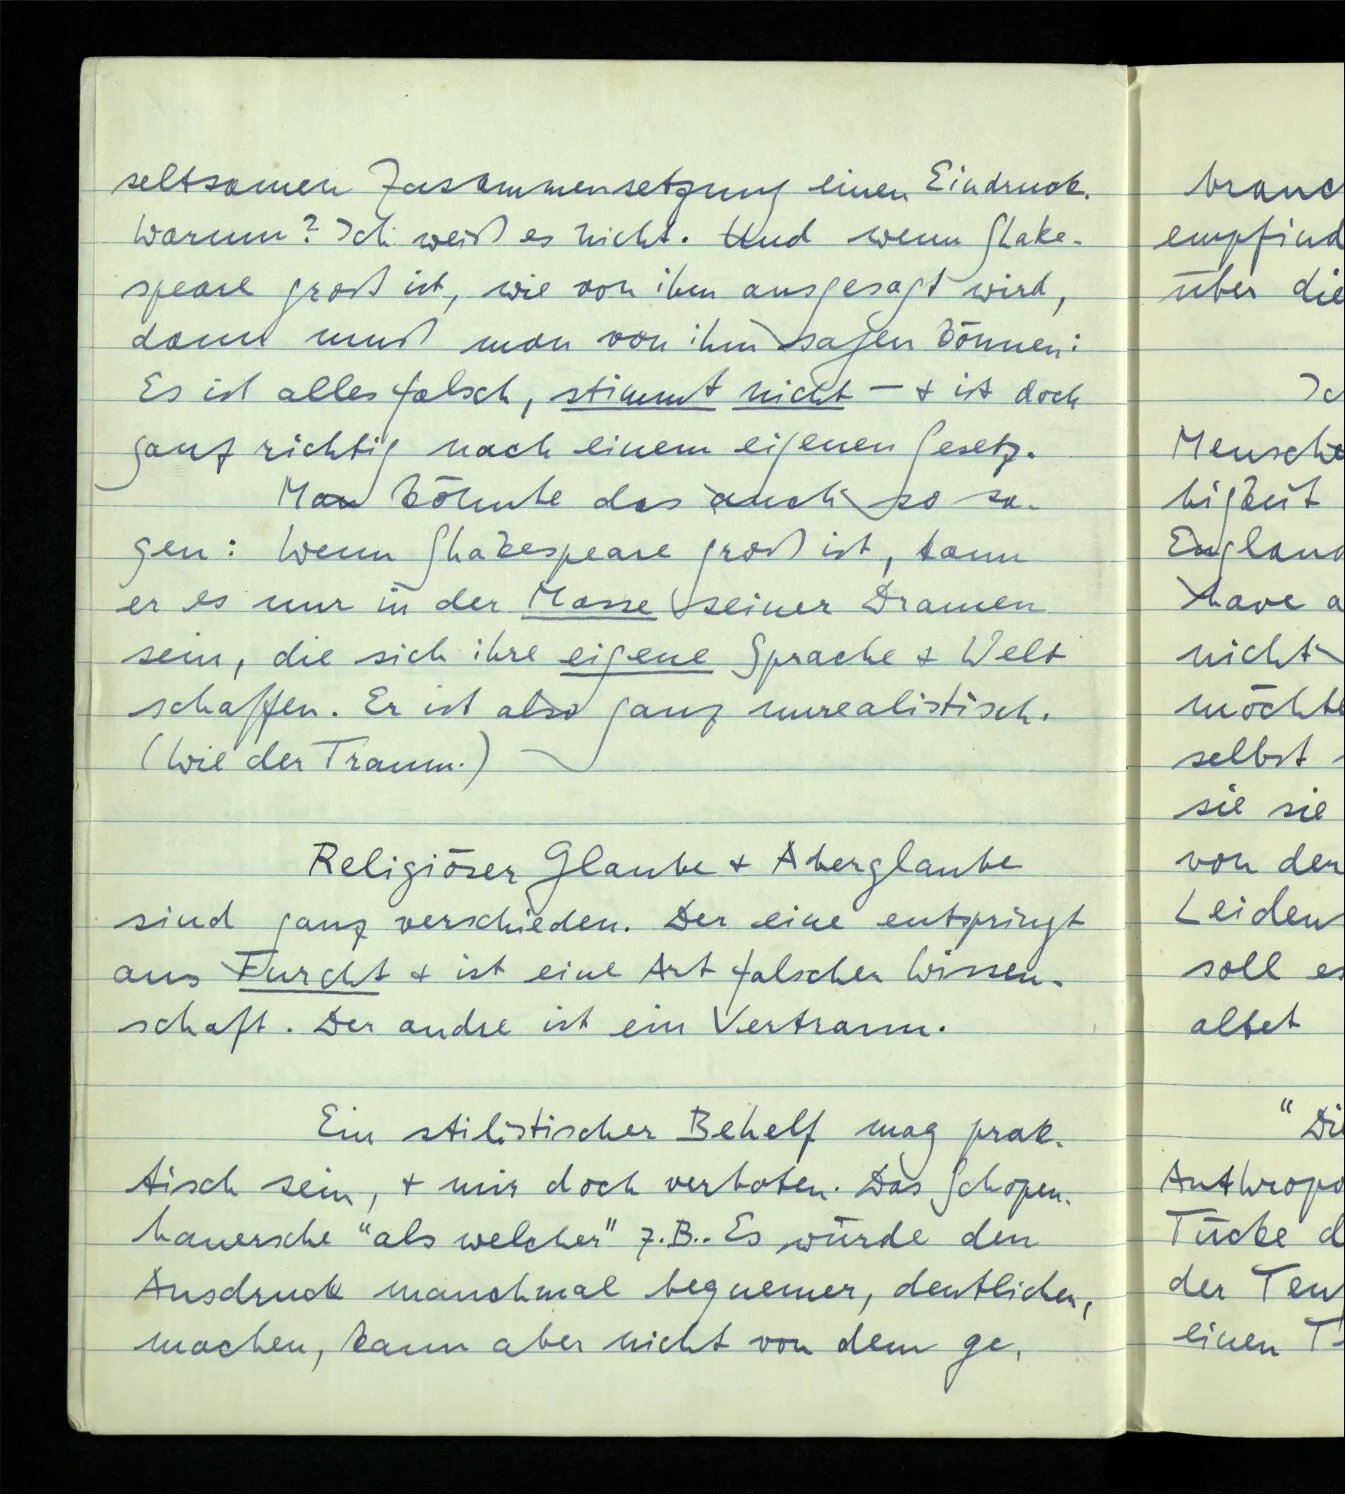 seltsamen Zusammensetzung einen Eindruck.
Warum? Ich weiß es nicht. Und wenn Shake-
speare groß ist, wie von ihm ausgesagt wird,
dann muß man von ihm sagen können:
Es ist alles falsch, stimmt nicht – + ist doch
ganz richtig nach einem eigenen Gesetz.
Man könnte das auch so sa-
gen: Wenn Shakespeare groß ist, kann
er es nur in der Masse seiner Dramen
sein, die sich ihre eigene Sprache + Welt
schaffen. Er ist also ganz unrealistisch.
(Wie der Traum.)
Religiöser Glaube + Aberglaube
sind ganz verschieden. Der eine entspringt
aus Furcht + ist eine Art falscher Wissen-
schaft. Der andre ist ein Vertraun.
Ein stilistischer Behelf mag prak-
tisch sein, + mir doch verboten. Das Schopen-
hauersche "als welcher" z.B.. Es würde den
Ausdruck manchmal bequemer, deutlicher,
machen, kann aber nicht von dem ge-
brauc
empfind
über die
Ic
Mensche
higkeit
England
have a
nicht
möchte
selbst
sie sie
von der
Leidens
soll es
altet
"Die
Anthropo
Tücke d
der Teu
einen T